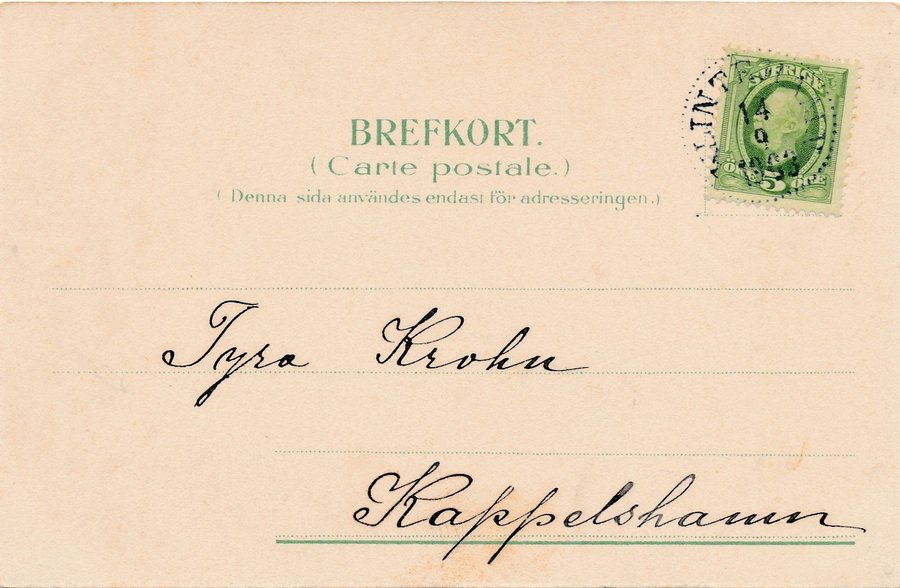 BREFKORT.
(Carte postale.)
(Denna sida användes endast för adresseringen.)
SVERIGE
14
9
5 ÖRE
Tyra Krohn
Kappelshamn